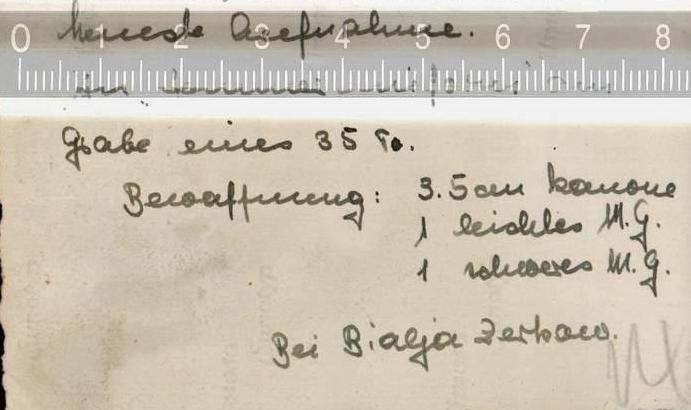 0 1 2 3 4 5 6 7 8
Aufnahme.
Grabe eines 35 To.
Bewaffnung: 3.5cm Kanone
1 leichtes M.G.
1 schweres M.G.
Bei Bialja Zerkow.